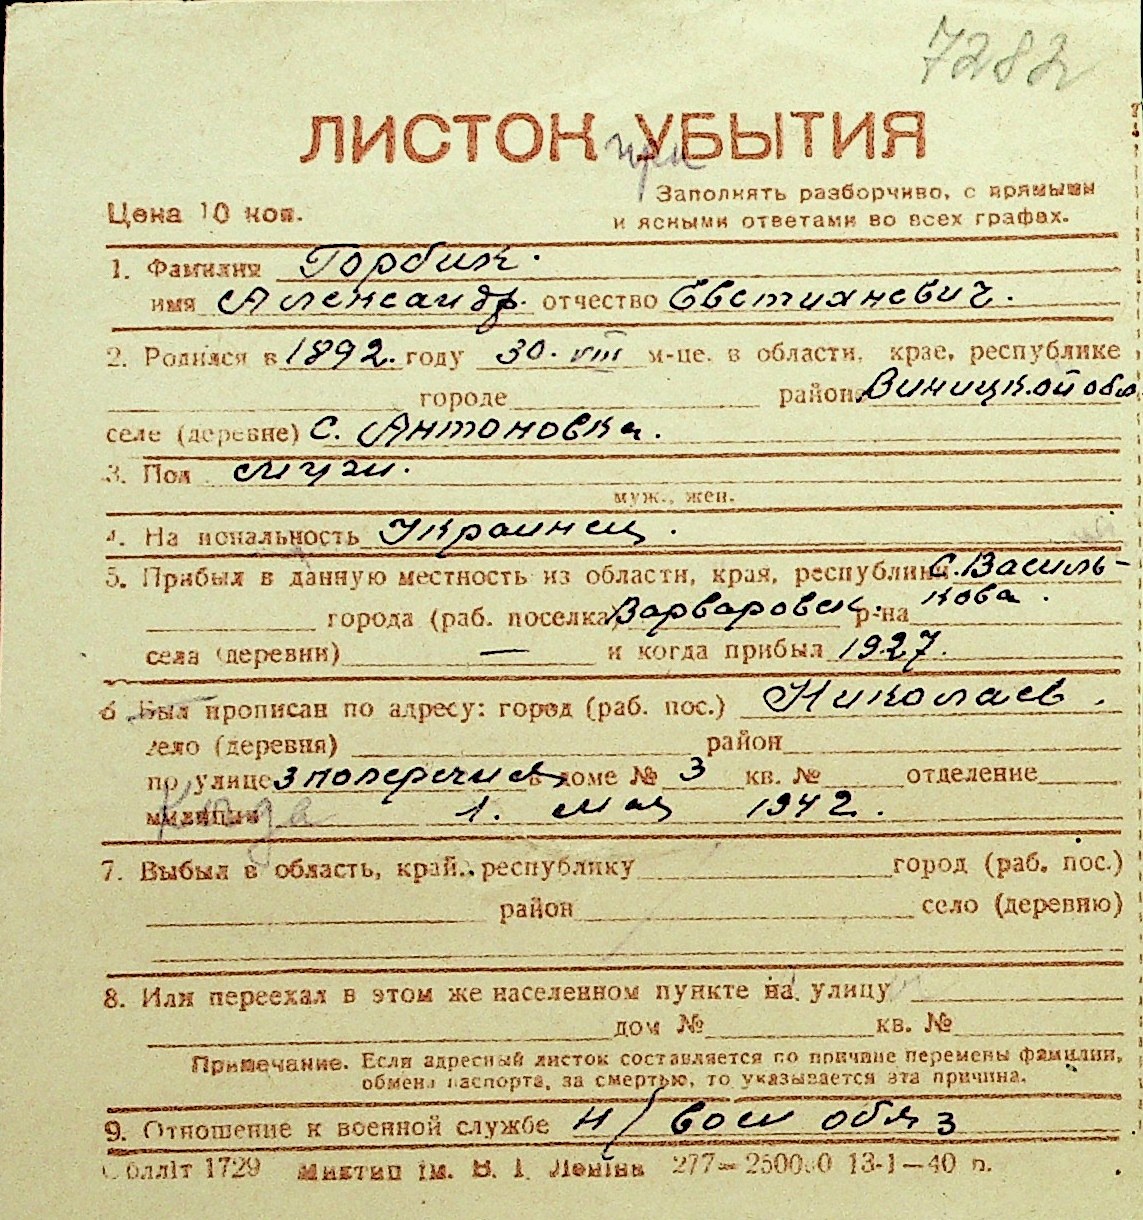 7282
ЛИСТОК УБЫТИЯ
при
Цена 10 коп.
Заполнять разборчиво, с прямыми
и ясными ответами во всех графах.
1. Фамилия Горбик.
имя Александр. отчество Евстихневич.
2. Родился в 1892. году 30. VIII м-це. в области, крае, республике
городе районе Виницк.ой обл
селе (деревне) с. Антоновка.
3. Пол мужч.
муж., жен.
4. Национальность Украинец.
5. Прибыл в данную местность из области, края, республики с. Василь-
города (раб. поселка) Варваровск. р-на кова.
села (деревни) — и когда прибыл 1927.
6 Был прописан по адресу: город (раб. пос.) Николаев.
село (деревня) район
по улице 3 поперечная в доме № 3 кв. № отделение
милиции 1. мая 1942.
Когда
7. Выбыл в область, край, республику город (раб. пос.)
район село (деревню)
8. Или переехал в этом же населенном пункте на улицу
дом № кв. №
Примечание. Если адресный листок составляется по причине перемены фамилии,
обмена паспорта, за смертью, то указывается эта причина.
9. Отношение к военной службе н/воен обяз
Облліт 1729 Миктип ім. В. І. Леніна 277—250000 13-1—40 п.